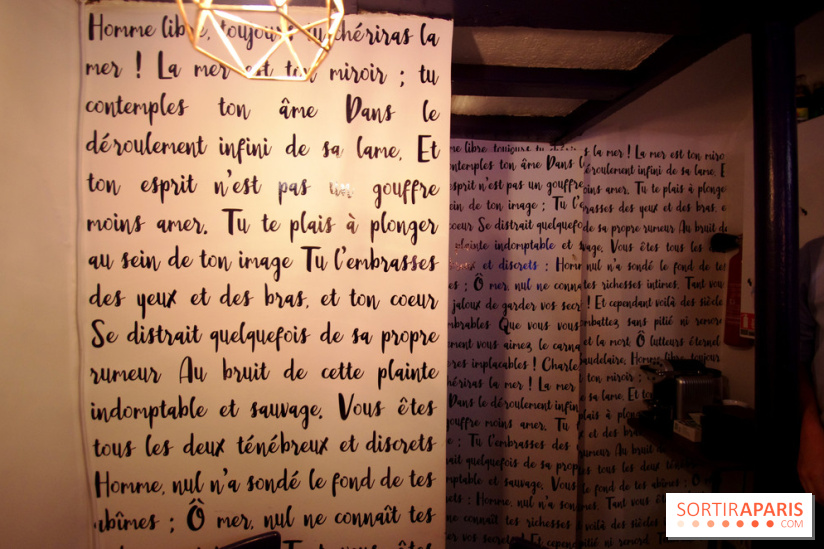 Homme libre, toujours tu chériras la
mer ! La mer est ton miroir ; tu
contemples ton âme Dans le
déroulement infini de sa lame, Et
ton esprit n'est pas un gouffre
moins amer. Tu te plais à plonger
au sein de ton image Tu l'embrasses
des yeux et des bras, et ton coeur
Se distrait quelquefois de sa propre
rumeur Au bruit de cette plainte
indomptable et sauvage. Vous êtes
tous les deux ténébreux et discrets
Homme, nul n'a sondé le fond de tes
abîmes ; Ô mer, nul ne connaît tes
me libre toujours tu
contemples ton âme Dans l
esprit n'est pas un gouffre
ein de ton image ; Tu l'e
coeur Se distrait quelquefo
plainte indomptable et s
eux et discrets : Homm
es : Ô mer, nul ne conna
jaloux de garder vos secr
mbrables Que vous vous
ment vous aimez le carna
res implacables ! Charle
hériras la mer ! La mer
Dans le déroulement infin
gouffre moins amer. Tu
e ; Tu l'embrasses des
ait quelquefois de sa prop
mptable et sauvage. Vous
rets : Homme, nul n'a son
ne connaît tes richesses
s la mer ! La mer est ton miro
déroulement infini de sa lame, E
oins amer. Tu te plais à plonge
rasses des yeux et des bras, e
de sa propre rumeur Au bruit de
vage. Vous êtes tous les de
nul n'a sondé le fond de tes
tes richesses intimes, Tant vou
! Et cependant voilà des siècle
mbattez sans pitié ni remord
et la mort, Ô lutteurs éternel
audelaire, Homme libre, toujour
ton miroir ;
sa lame, Et to
plais à plon
et des bra
rumeur Au bruit
tous les deux téné
le fond de tes abîmes ; Ô
intimes, Tant vous êtes
voilà des siècles
ni remord
SORTIRAPARIS
.COM